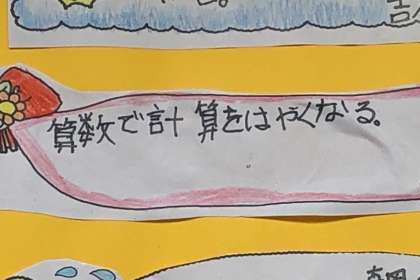 算数で計算をはやくなる。